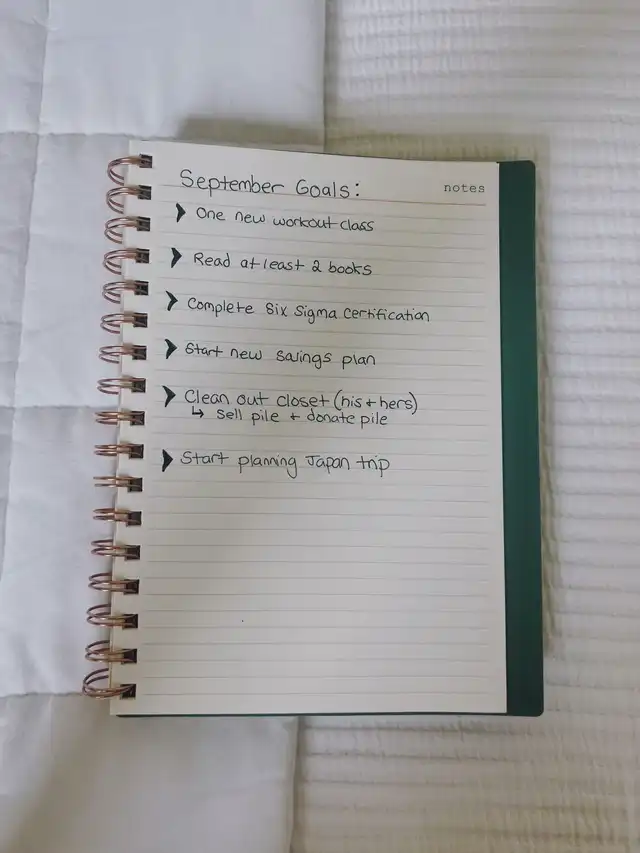 September Goals:
notes
One new workout class
Read at least 2 books
Complete Six Sigma Certification
Start new savings plan
Clean out closet (his + hers)
↳ Sell pile + donate pile
Start planning Japan trip